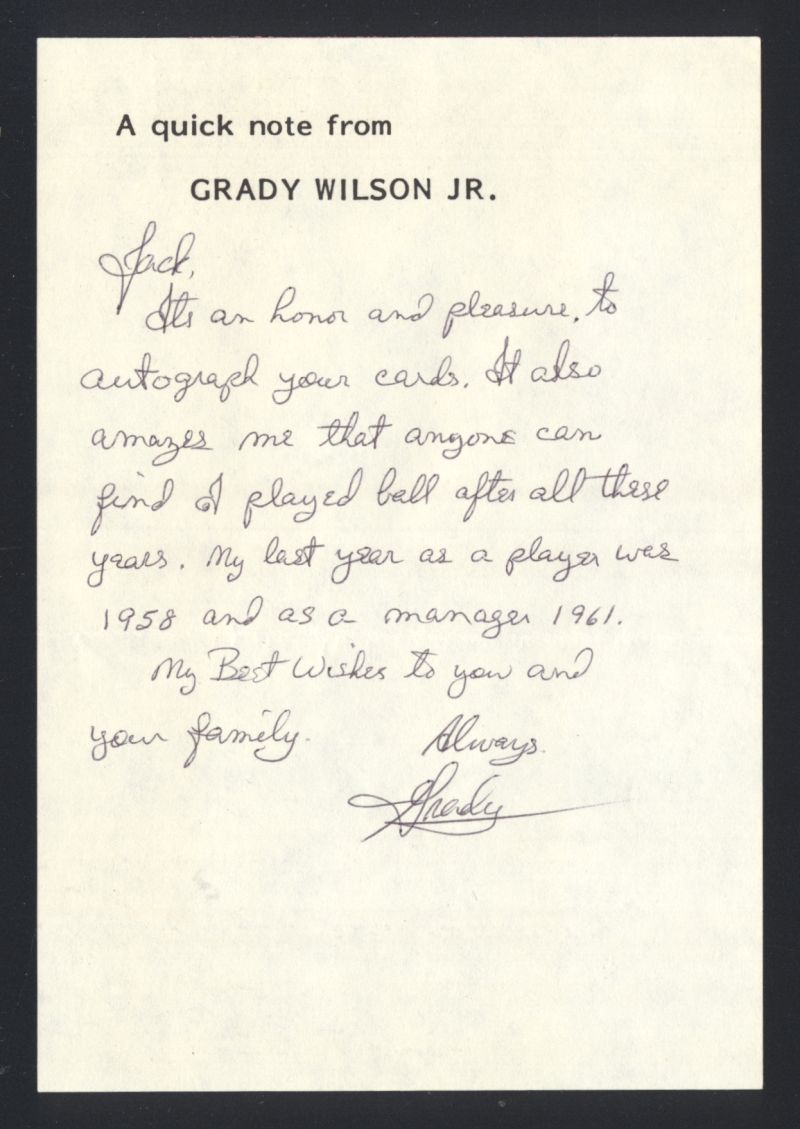 A quick note from
GRADY WILSON JR.
Jack,
Its an honor and pleasure, to
autograph your cards. It also
amazes me that anyone can
find I played ball after all these
years. My last year as a player was
1958 and as a manager 1961.
My Best Wishes to you and
your family.
Always.
Grady